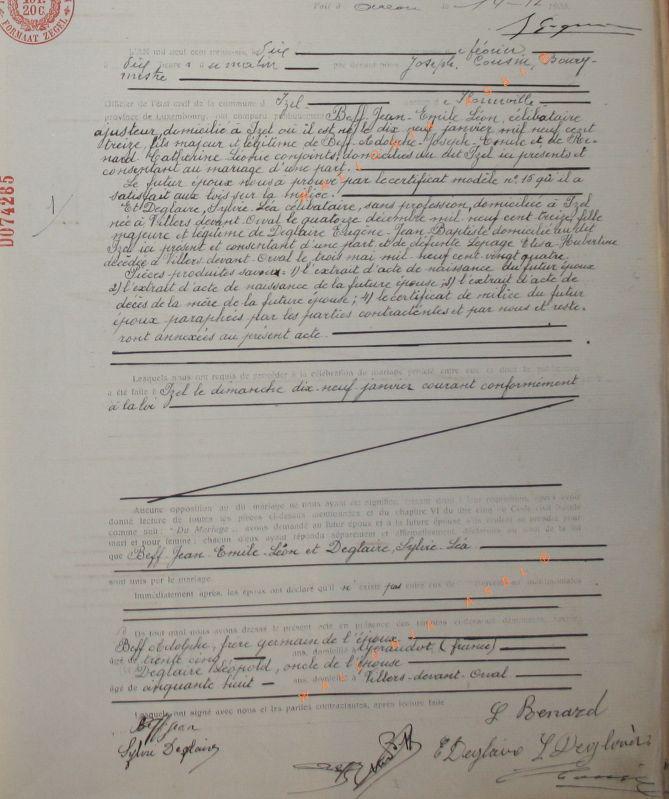 FORMAAT ZEGEL
D074285
L'AN mil neuf cent trente-six, le dix février
à dix heures du matin par devant nous Joseph Cousin, Bourg-
mestre
Officier de l'état civil de la commune d'Izel
province de Luxembourg, ont comparu publiquement Beff, Jean-Emile-Léon, célibataire
ajusteur, domicilié à Izel où il est né le dix neuf janvier mil neuf cent
treize, fils majeur et légitime de Beff Adolphe-Joseph-Emile et de Re-
nard Catherine Léonie conjoints, domiciliés au dit Izel ici présents et
consentant au mariage d'une part.
Le futur époux nous a prouvé par le certificat modèle n° 15 qu'il a
satisfait aux lois sur la milice.
Et Deglaire, Sylvie Léa célibataire, sans profession, domiciliée à Izel
née à Villers devant Orval le quatorze décembre mil neuf cent treize, fille
majeure et légitime de Deglaire Eugène-Jean Baptiste domicilié au dit
Izel ici présent et consentant d'une part et de défunte Lepage Elisa-Hubertine
décédée à Villers devant-Orval le trois mai mil-neuf cent vingt quatre
Pièces produites savoir: 1) l'extrait d'acte de naissance du futur époux
2) l'extrait d'acte de naissance de la future épouse; 3) l'extrait d'acte de
décès de la mère de la future épouse; 4) le certificat de milice du futur
époux paraphées par les parties contractantes et par nous et reste-
ront annexées au présent acte.
Lesquels nous ont requis de procéder à la célébration du mariage projeté entre eux et dont la publication
a été faite à Izel le dimanche dix-neuf janvier courant conformément
à la loi
Aucune opposition au dit mariage ne nous ayant été signifiée, faisant droit à leur réquisition, après avoir
donné lecture de toutes les pièces ci-dessus mentionnées et du chapitre VI du titre cinq du Code civil intitulé
comme suit: "Du Mariage", avons demandé au futur époux et à la future épouse s'ils veulent se prendre pour
mari et pour femme; chacun d'eux ayant répondu séparément et affirmativement, déclarons au nom de la loi
que Beff Jean-Emile-Léon et Deglaire, Sylvie-Léa
sont unis par le mariage.
Immédiatement après, les époux ont déclaré qu'il n'existe pas entre eux de conventions matrimoniales
De tout quoi nous avons dressé le présent acte en présence des témoins
Beff Adolphe, frère germain de l'époux
âgé de trente cinq ans, domicilié à (france)
Deglaire Léopold, oncle de l'épouse
âgé de cinquante huit ans, domicilié à Villers-devant-Orval
Lesquels ont signé avec nous et les parties contractantes, après lecture faite
Beff Jean
L Benard
Sylvie Deglaire
E Deglaire L Deglaire